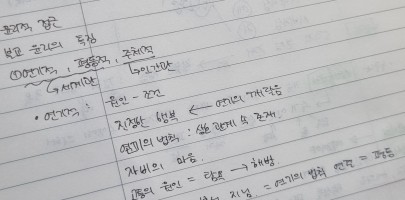 윤리적 접근
불교 윤리의 특징
(1)연기적, 평등적, 주체적
↳세계관 ↳인간관
• 연기적 : 원인 - 조건
진정한 행복 ← 연기의 깨달음
연기의 법칙 : 상호 관계 속 존재.
자비의 마음.
고통의 원인 = 탐욕 → 해방
지님. = 연기의 법칙 = 평등